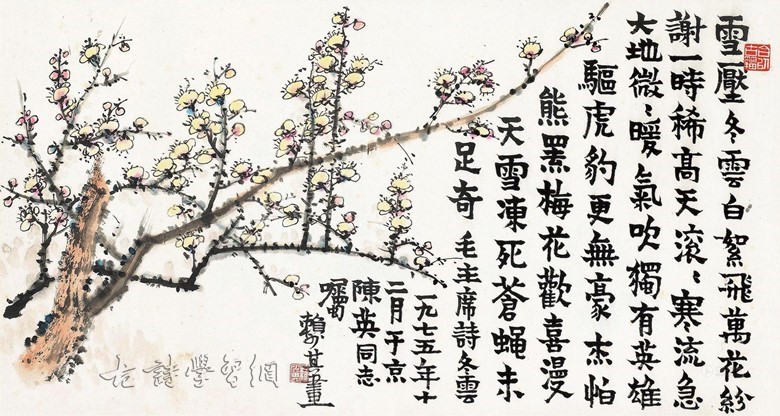 雪壓冬雲白絮飛萬花紛
謝一時稀高天滾〻寒流急
大地微〻暖氣吹獨有英雄
驅虎豹更無豪杰怕
熊羆梅花歡喜漫
天雪凍死蒼蝇未
足奇 毛主席詩冬雲
一九七五年十
二月于京
陳英同志
囑
賴少其畫
古詩學習網